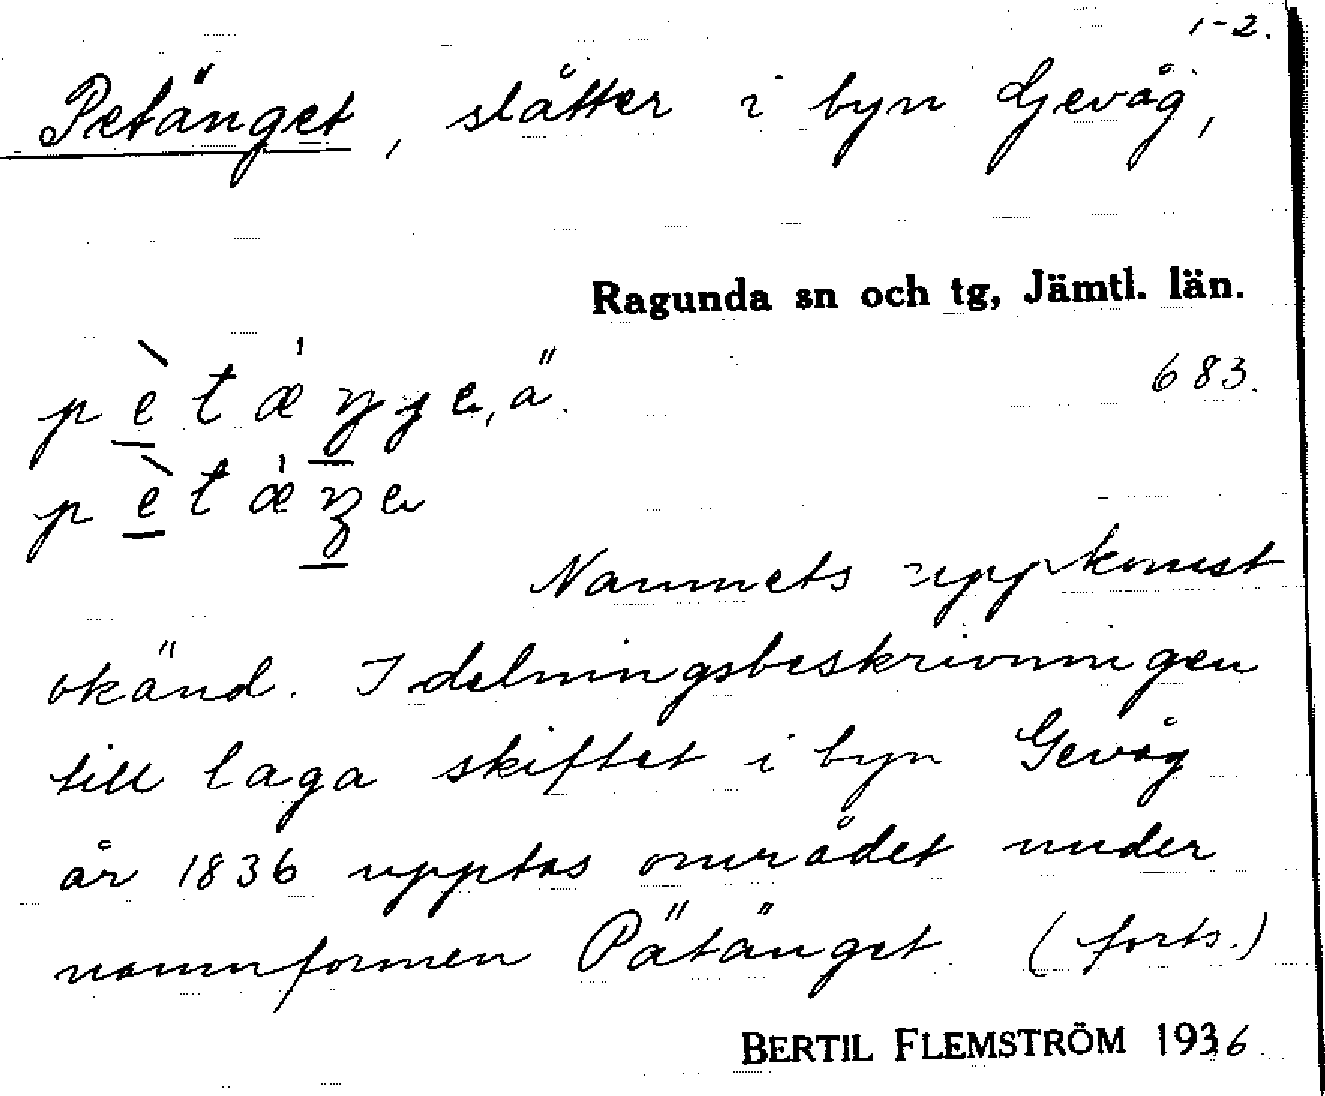 1-2.
Petänget, slåtter i byn Gevåg,
Ragunda sn och tg, Jämtl. län.
683.
Namnets uppkomst
okänd. I delningsbeskrivningen
till laga skiftet i byn Gevåg
år 1836 upptas området under
namnformen Pätänget. (forts.)
BERTIL FLEMSTRÖM 1936.